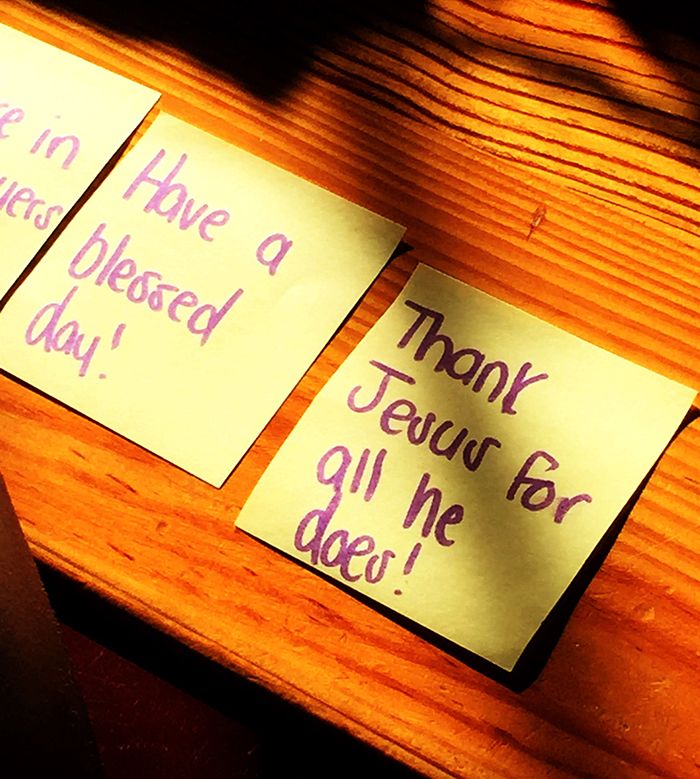 e in
yers
Have a
blessed
day!
Thank
Jesus for
all he
does!